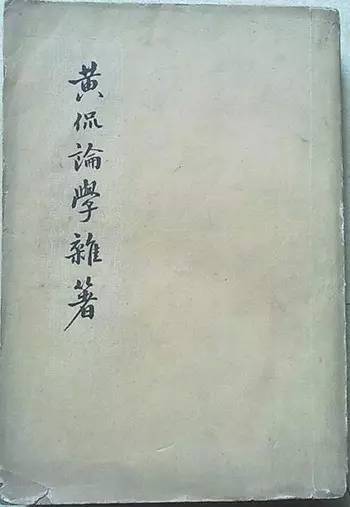 黄侃論學雜著